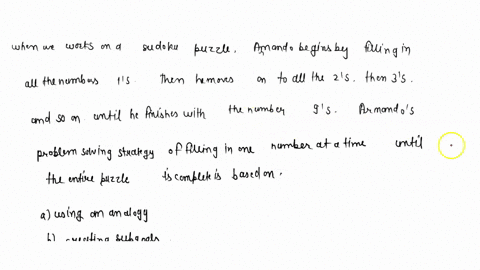 when we works on a sudoku puzzle, Armando begins by filling in
all the numbers 1's. then he moves on to all the 2's. then 3's.
and so on until he finishes with the number 9's. Armando's
problem solving strategy of filling in one number at a time until
the entire puzzle is complete is based on.
a) using an analogy
b) creating subgoals.